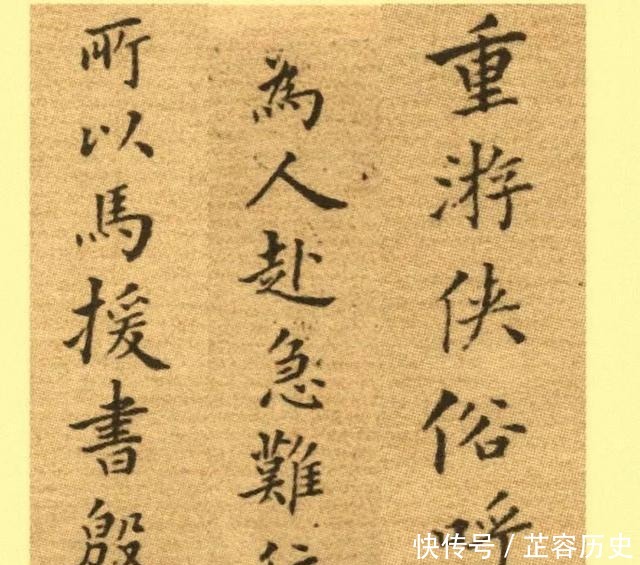 重游侠俗呼
為人赴急難
所以馬援書
快传号/芷容历史